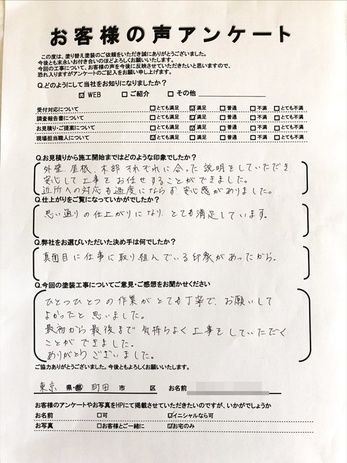 お客様の声アンケート
この度は、塗り替え塗装のご依頼をいただき誠にありがとうございました。
今後とも末永いお付き合いのほどよろしくお願いいたします。
今回の工事について、お客様の声を今後に反映させていただきたいと思いますので、
恐れ入りますがアンケートのご記入をお願い申し上げます。
Q.どのようにして当社をお知りになりましたか？
☑WEB □ご紹介 □その他
受付対応について □とても満足 ☑満足 □普通 □不満 □とても不満
調査報告書について □とても満足 ☑満足 □普通 □不満 □とても不満
お見積り・ご提案について □とても満足 ☑満足 □普通 □不満 □とても不満
現場担当職人について ☑とても満足 □満足 □普通 □不満 □とても不満
Q.お見積りから施工開始まではどのような印象でしたか？
外壁、屋根、木部 それぞれに合った説明をしていただき
安心して工事をお任せすることができました。
近所への対応も過度にならず 安心感がありました。
Q.仕上がりをご覧になっていかがでしたか？
思い通りの仕上がりになり とても満足しています。
Q.弊社をお選びいただいた決め手は何でしたか？
真面目に仕事に取り組んでいる印象があったから。
Q.今回の塗装工事についてご意見・ご感想をお聞かせください
ひとつひとつの作業がとても丁寧で、お願いして
よかったと思いました。
最初から最後まで気持ちよく工事をしていただく
ことができました。
ありがとうございました。
ご協力ありがとうございました。今後ともよろしくお願いいたします。
東京 県・都 町田 市 区 お名前
お客様のアンケートやお写真をHPにて掲載させていただきたいのですが、いかがでしょうか
お名前 □可 ☑イニシャルなら可
お写真 □お客様とご一緒に ☑お宅のみ